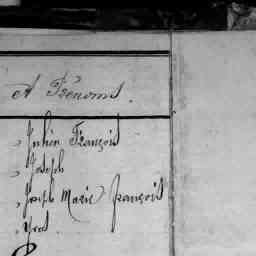 et Prénoms.
„ Julien François
„ Joseph
„ Joseph Marie François
„ Yves